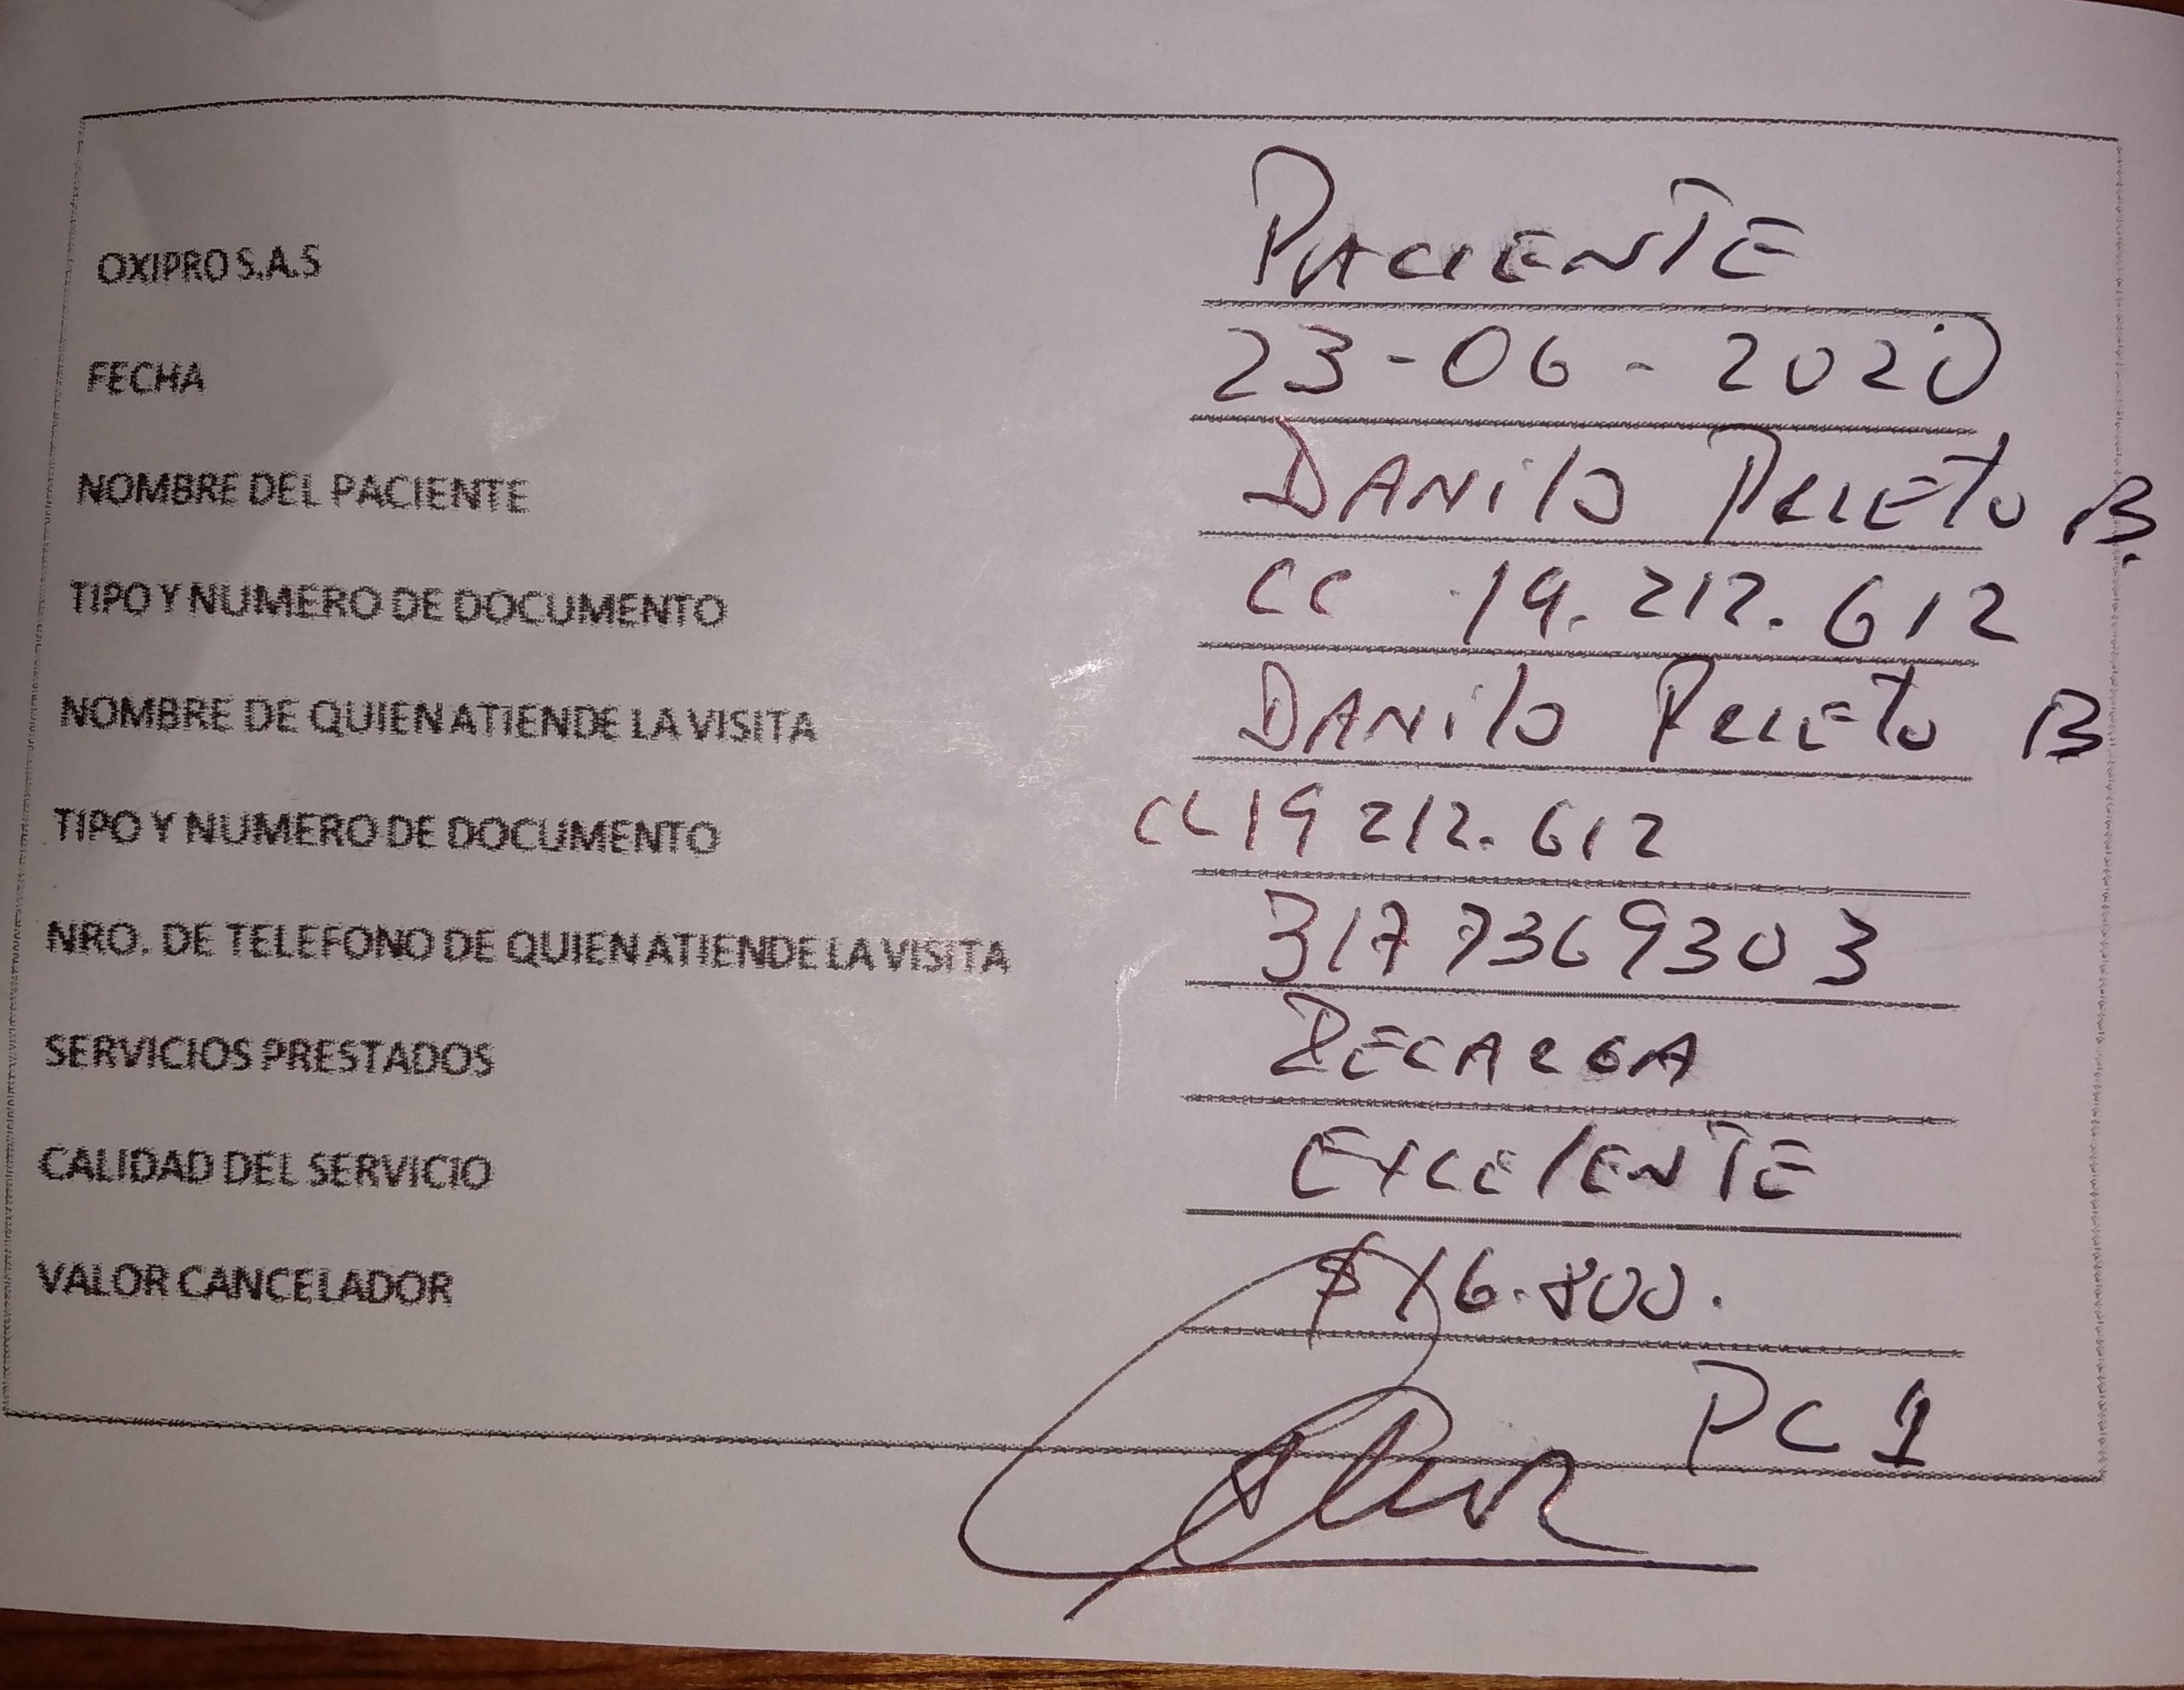 OXIPRO S.A.S PACIENTE
FECHA 23-06-2020
NOMBRE DEL PACIENTE DANilo PRIETO B.
TIPO Y NUMERO DE DOCUMENTO CC 19.212.612
NOMBRE DE QUIEN ATIENDE LA VISITA DANilo PRIETO B
TIPO Y NUMERO DE DOCUMENTO CC 19 212.612
NRO. DE TELEFONO DE QUIEN ATIENDE LA VISITA 317 7369303
SERVICIOS PRESTADOS RECARGA
CALIDAD DEL SERVICIO EXCElENTE
VALOR CANCELADOR $16.800.
PC 1